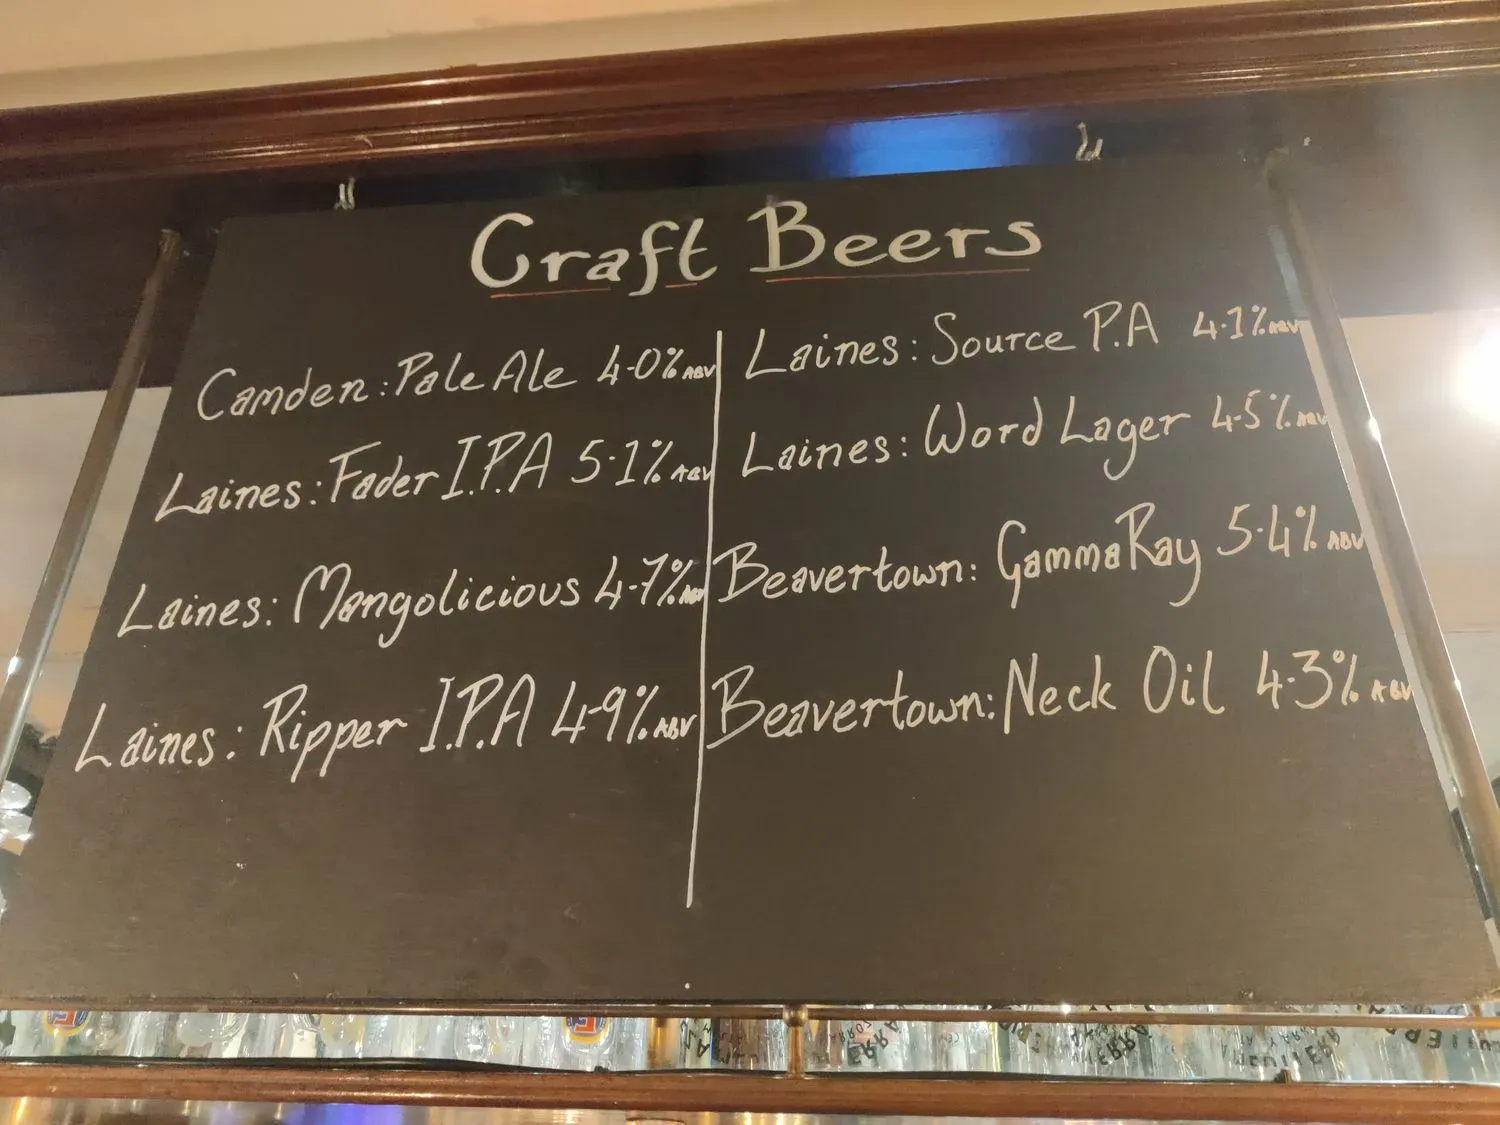 Craft Beers
Camden: Pale Ale 4.0% ABV
Laines: Fader I.P.A 5.1% ABV
Laines: Mangolicious 4.7% ABV
Laines: Ripper I.P.A 4.9% ABV
Laines: Source P.A 4.1% ABV
Laines: Word Lager 4.5% ABV
Beavertown: Gamma Ray 5.4% ABV
Beavertown: Neck Oil 4.3% ABV